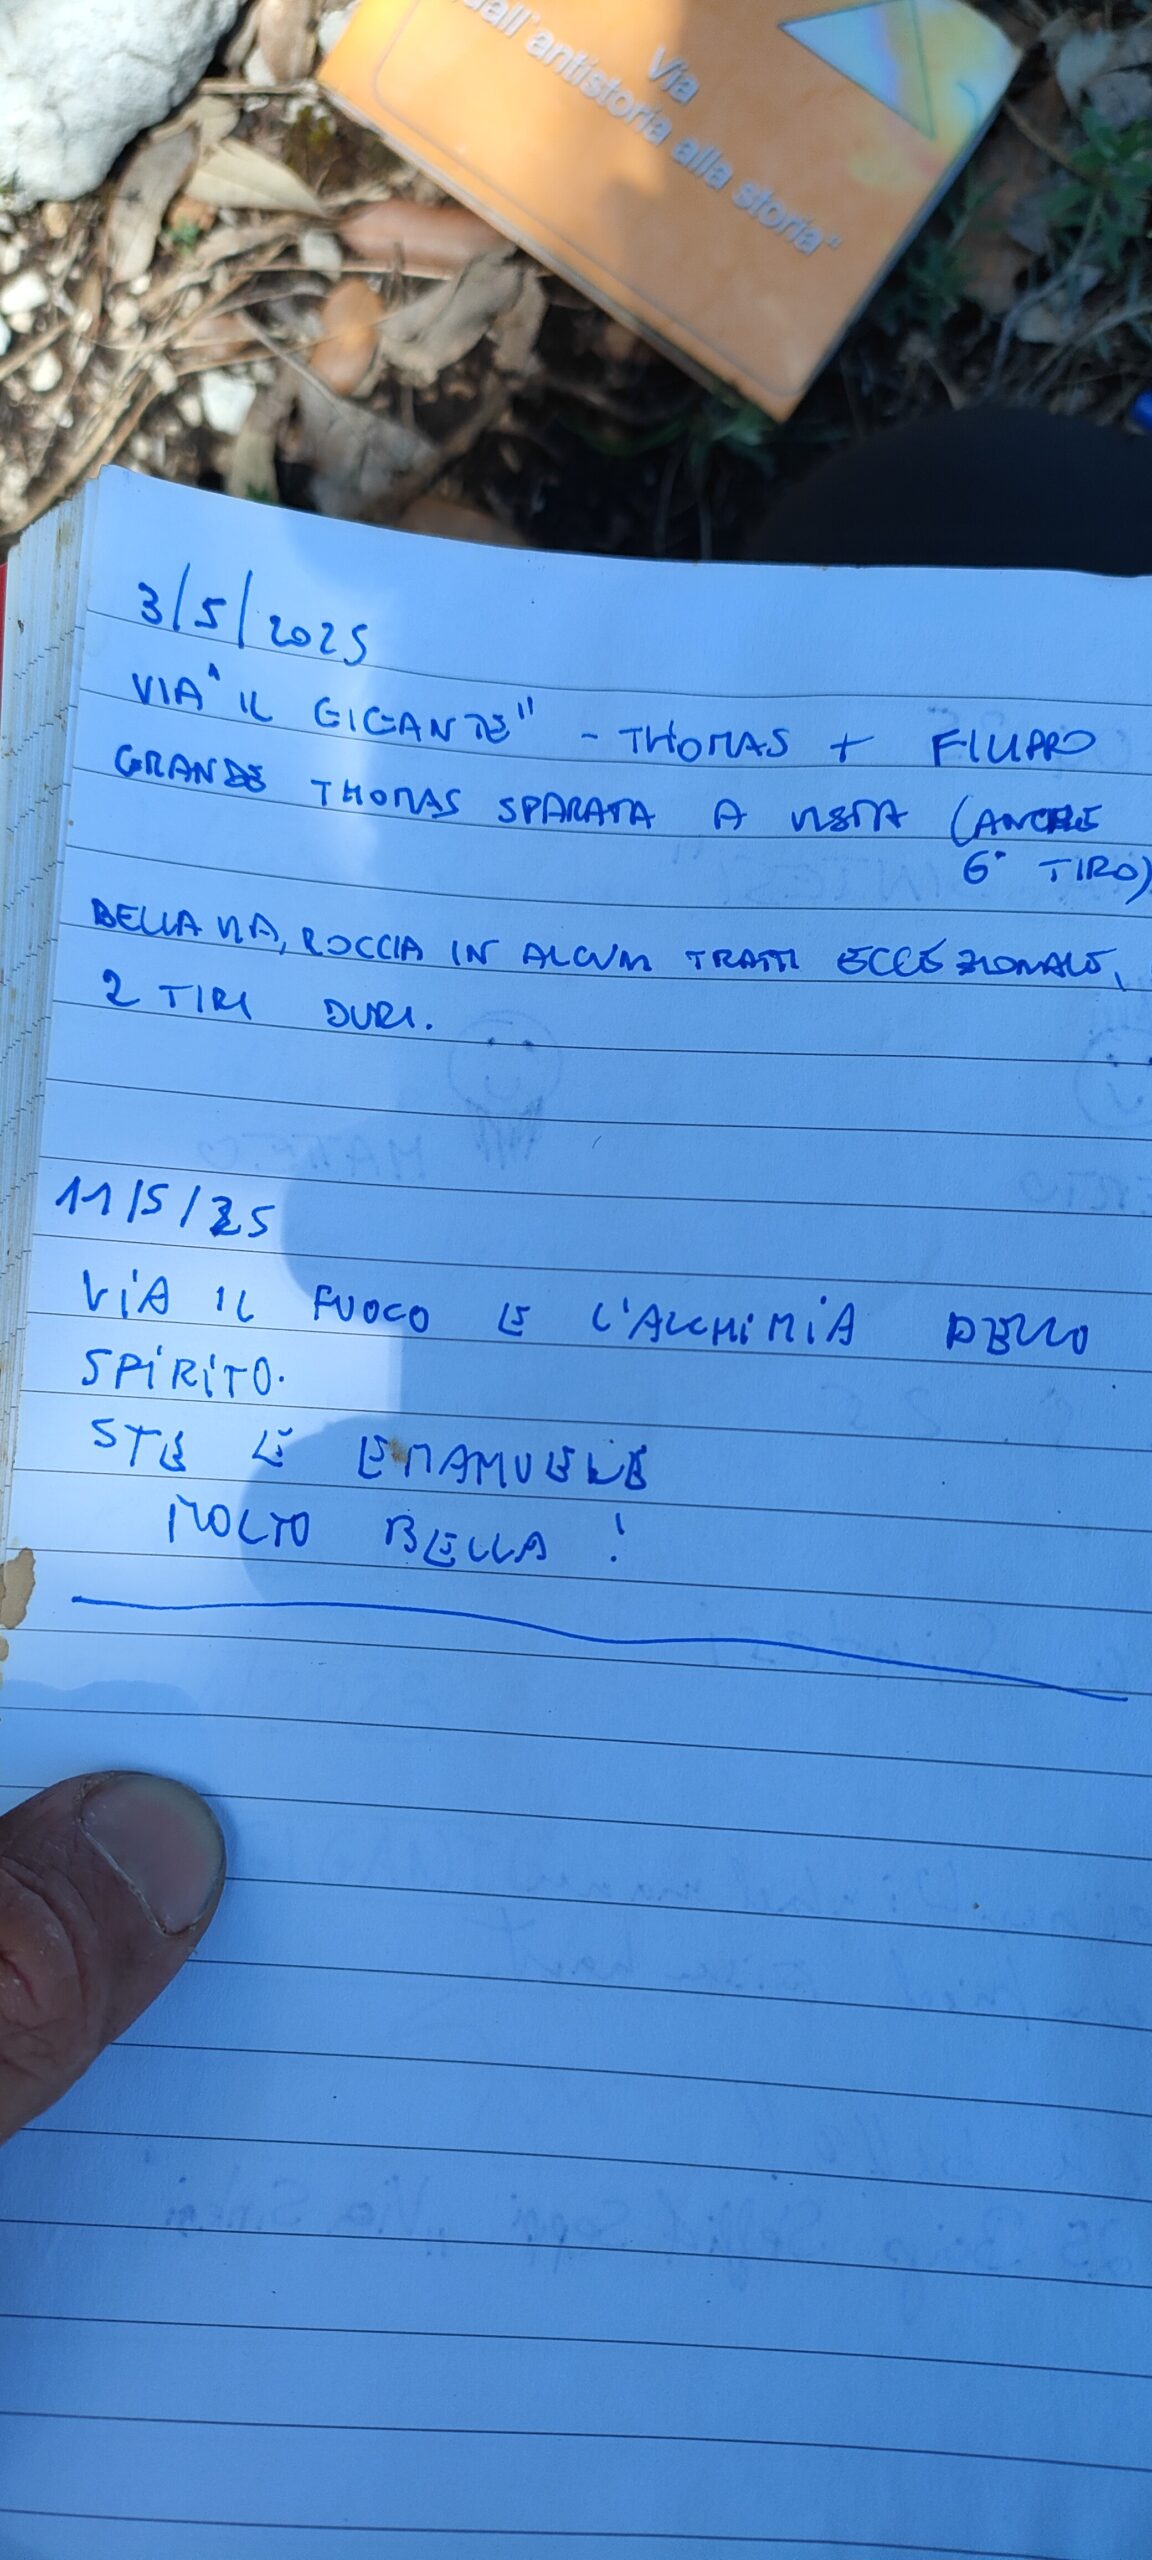 Via
dall'antistoria alla storia"
3/5/2025
VIA "IL GIGANTE" - THOMAS + FILIPPO
GRANDE THOMAS SPARATA A VISTA (ANCHE
6° TIRO)
BELLA VIA, ROCCIA IN ALCUNI TRATTI ECCEZIONALE,
2 TIRI DURI.
11/5/25
VIA IL FUOCO E L'ALCHIMIA DELLO
SPIRITO.
STE E EMANUELE
MOLTO BELLA!